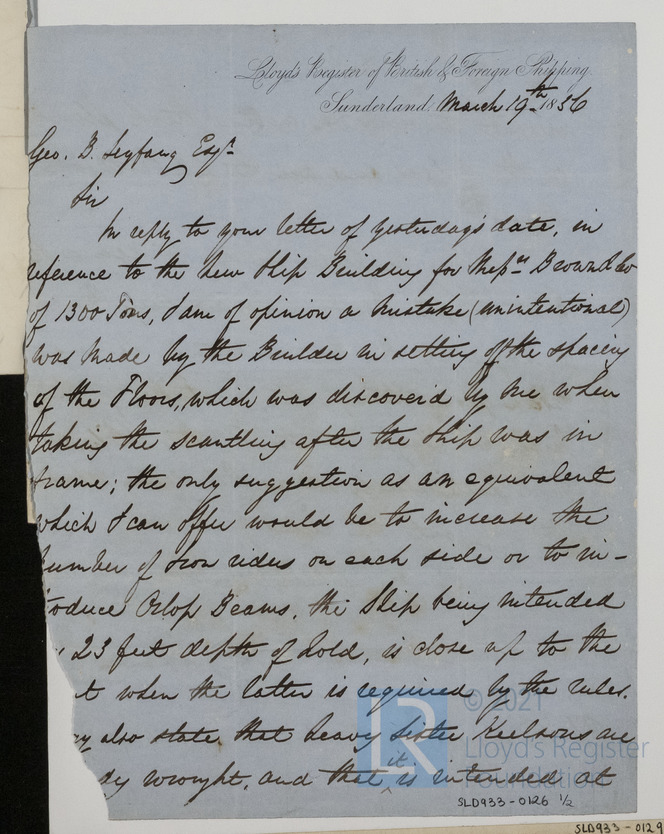 Lloyd's Register of British & Foreign Shipping.
Sunderland. March 19th 1856
Geo. B. Seyfang Esqr
Sir
In reply to your letter of yesterday's date, in
reference to the new Ship Building for Messrs Brown & Co
of 1300 Tons, I am of opinion a mistake (unintentional)
was made by the Builder in setting off the spacing
of the Floors, which was discover'd by me when
taking the scantling after the Ship was in
frame; the only suggestion as an equivalent
which I can offer would be to increase the
number of Iron riders on each side or to in-
troduce Orlop Beams, the Ship being intended
23 feet depth of hold, is close up to the
t when the latter is required by the rules.
ay also state that heavy Sister Keelsons are
dy wrought, and that it is intended at
© 2021
Lloyd's Register
Foundation
SLD933-0126 1/2
SLD933-0129